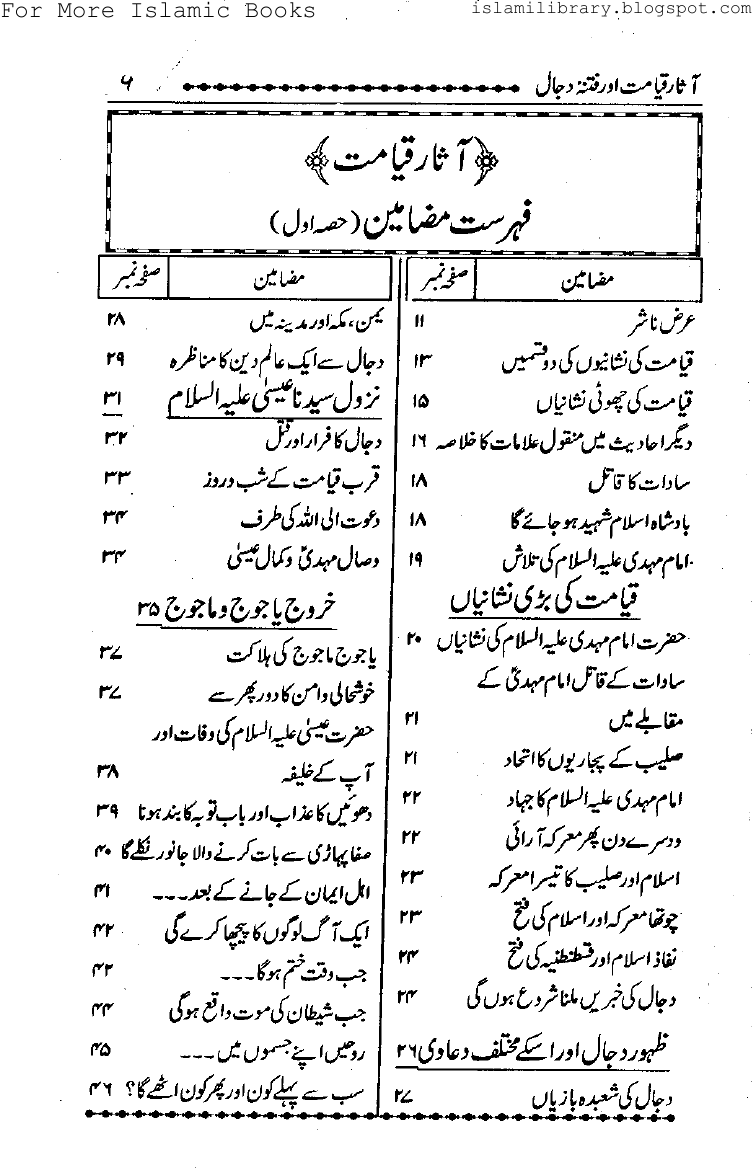 For More Islamic Books
islamilibrary.blogspot.com
آثار قیامت اور فتنۂ دجال ۶
﴿آثار قیامت﴾
فہرست مضامین (حصہ اول)
مضامین صفحہ نمبر
عرض ناشر ۱۱
قیامت کی نشانیوں کی دو قسمیں ۱۳
قیامت کی چھوٹی نشانیاں ۱۵
دیگر احادیث میں منقول علامات کا خلاصہ ۱۶
سادات کا قاتل ۱۸
بادشاہ اسلام شہید ہو جائے گا ۱۸
امام مہدی علیہ السلام کی تلاش ۱۹
قیامت کی بڑی نشانیاں
حضرت امام مہدی علیہ السلام کی نشانیاں ۲۰
سادات کے قاتل امام مہدیؑ کے
مقابلے میں ۲۱
صلیب کے پجاریوں کا اتحاد ۲۱
امام مہدی علیہ السلام کا جہاد ۲۲
دوسرے دن پھر معرکہ آرائی ۲۲
اسلام اور صلیب کا تیسرا معرکہ ۲۳
چوتھا معرکہ اور اسلام کی فتح ۲۳
نفاذ اسلام اور قسطنطنیہ کی فتح ۲۴
دجال کی خبریں ملنا شروع ہوں گی ۲۴
ظہور دجال اور اسکے مختلف دعاوی ۲۶
دجال کی شعبدہ بازیاں ۲۷
مضامین صفحہ نمبر
یمن، مکہ اور مدینہ میں ۲۸
دجال سے ایک عالم دین کا مناظرہ ۲۹
نزول سیدنا عیسیٰ علیہ السلام ۳۱
دجال کا فرار اور قتل ۳۲
قرب قیامت کے شب و روز ۳۳
دعوت الی اللہ کی طرف ۳۴
وصال مہدیؑ و کمال عیسیٰ ۳۴
خروج یاجوج و ماجوج ۳۵
یاجوج ماجوج کی ہلاکت ۳۷
خوشحالی و امن کا دور پھر سے ۳۷
حضرت عیسیٰ علیہ السلام کی وفات اور
آپ کے خلیفہ ۳۸
دھوئیں کا عذاب اور باب توبہ کا بند ہونا ۳۹
صفا پہاڑی سے بات کرنے والا جانور نکلے گا ۴۰
اہل ایمان کے جانے کے بعد۔۔۔ ۴۱
ایک آگ لوگوں کا پیچھا کرے گی ۴۲
جب وقت ختم ہو گا۔۔۔ ۴۲
جب شیطان کی موت واقع ہو گی ۴۴
روحیں اپنے جسموں میں۔۔۔ ۴۵
سب سے پہلے کون اور پھر کون اٹھے گا؟ ۴۶